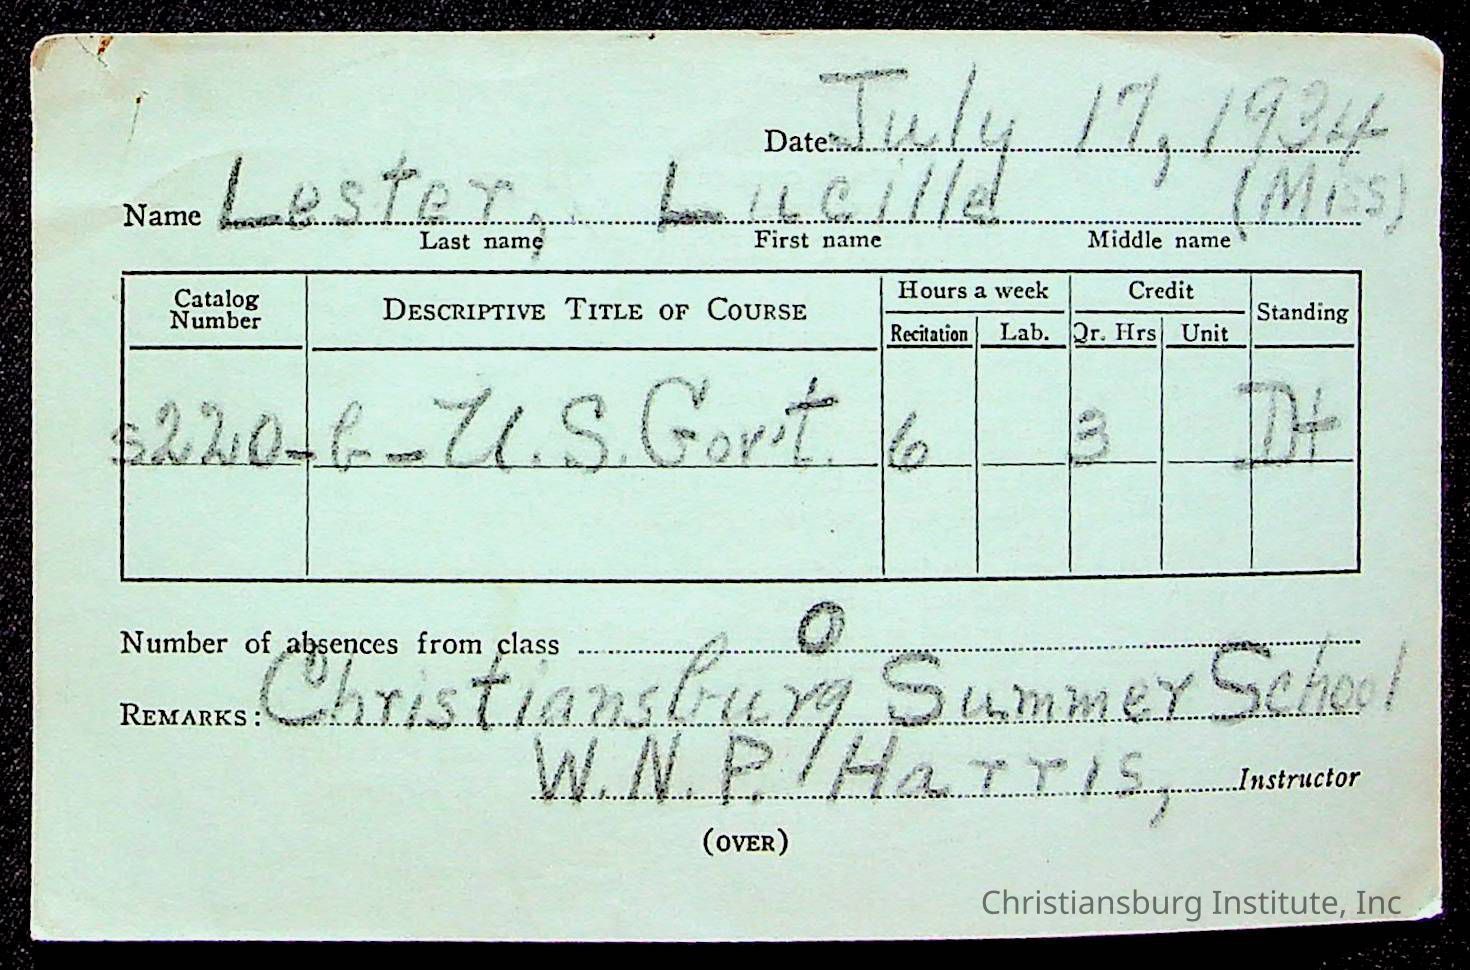 Date July 17, 1934
Name Lester, Lucille (Miss)
Last name First name Middle name
Catalog Number DESCRIPTIVE TITLE OF COURSE Hours a week Credit Standing
Recitation Lab. Qr. Hrs Unit
S220-b- U.S. Gov't. 6 3 D+
Number of absences from class 0
REMARKS: Christiansburg Summer School
W. N. P. Harris, Instructor
(OVER)
Christiansburg Institute, Inc